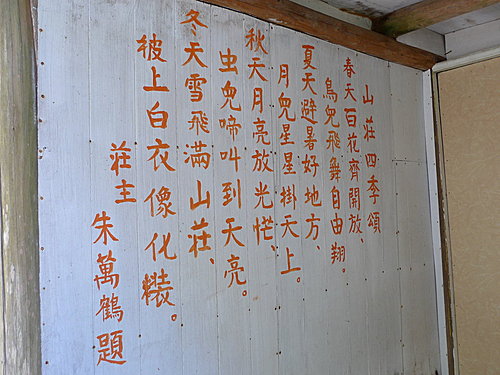 山莊四季頌
春天百花齊開放、
鳥兒飛舞自由翔。
夏天避暑好地方、
月兒星星掛天上。
秋天月亮放光芒、
虫兒啼叫到天亮。
冬天雪飛滿山莊、
被上白衣像化粧。
莊主
朱萬鶴題